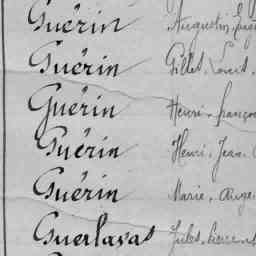 Guérin Augustin, Eug
Guérin Gillet, Louis
Guérin Henri, françois
Guérin Henri, Jean
Guérin Marie, Ange
Guerlavas Jules, Pierre